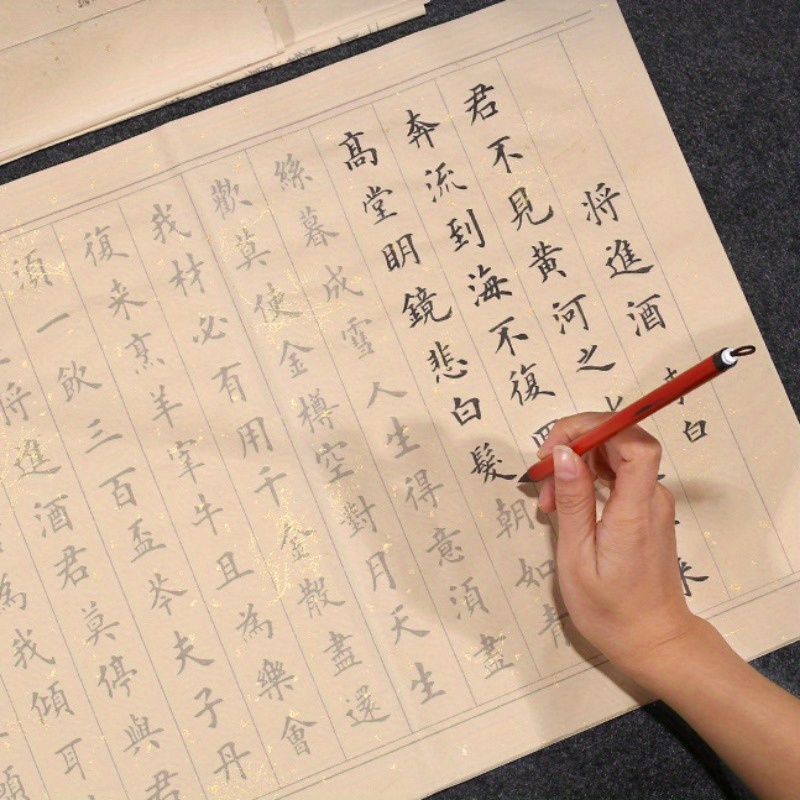 将進酒 李白
君不見黄河之来
奔流到海不復
髙堂明鏡悲白髮朝如青
絲暮成雪人生得意湏盡
歡莫使金樽空對月天生
我材必有用千金散盡還
復来烹羊宰牛且為樂會
湏一飲三百盃岑夫子丹
将進酒君莫停與君
為我傾耳